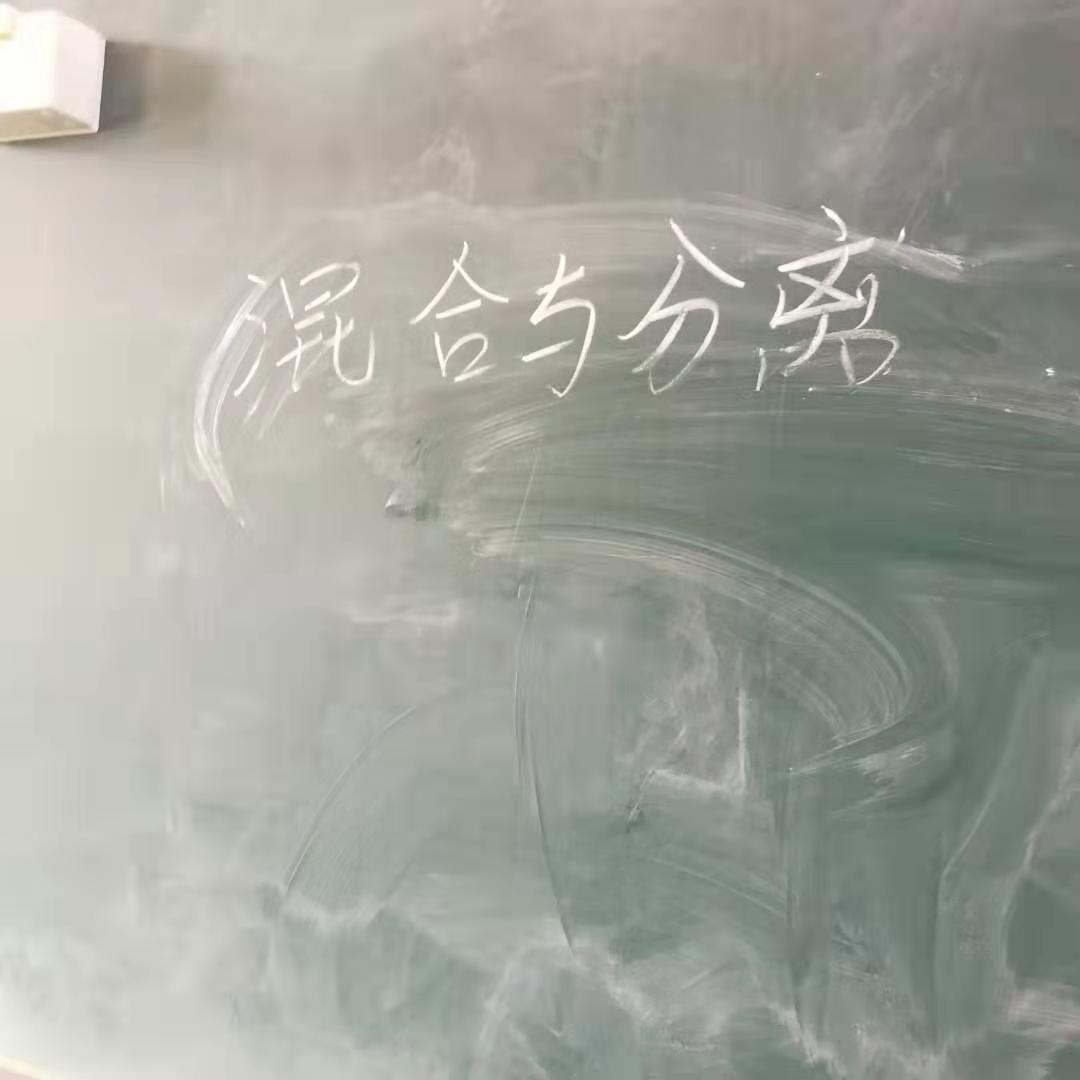 混合与分离